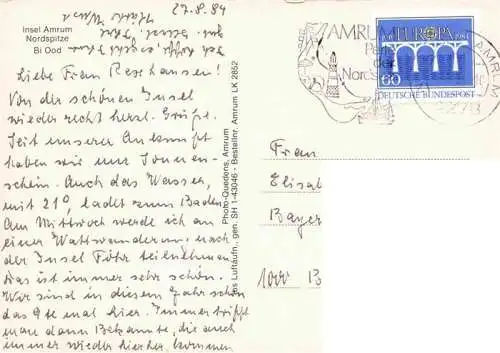 27.8.84
Insel Amrum
Nordspitze
Bi Ood
Liebe Frau
Von der schönen Insel
wieder recht herzl. Grüße.
Seit unserer Ankunft
haben wir nur Sonnen-
schein. Auch das Wasser,
mit 21°, ladet zum Baden.
Am Mittwoch werde ich an
einer Wattwanderung nach
der Insel Föhr teilnehmen
das ist immer sehr schön.
Wir sind in diesem Jahr schon
das 9te mal hier. Immer trifft
man dann Bekannte, die auch
immer wieder hierher kommen
Photo-Quedens, Amrum
Luftaufn., gen. SH 1-43046 - Bestellnr. Amrum LK 2652
AMRUM
Perle
der
Nords
AMRUM
EUROPA
60
DEUTSCHE BUNDESPOST
Frau
Elisab
Bayer
1000 B